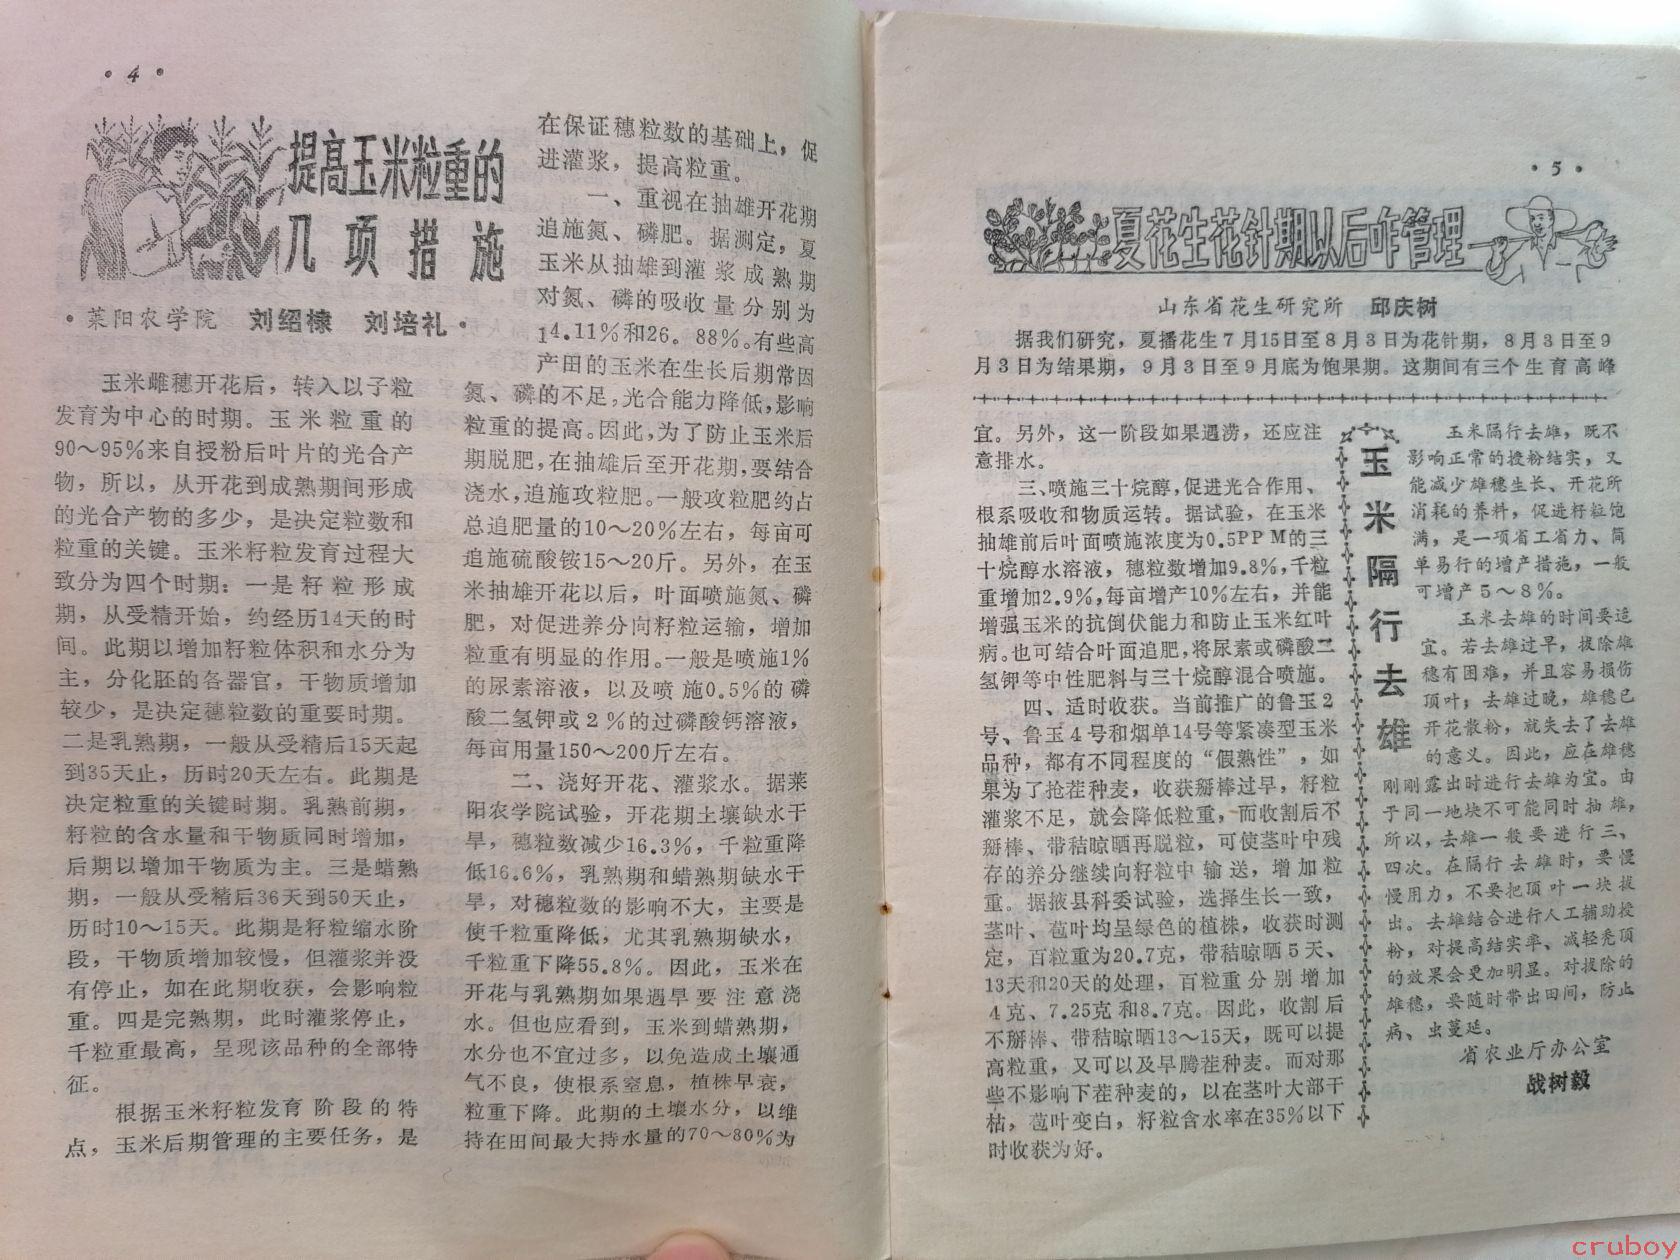 • 4 •
提高玉米粒重的
几项措施
•莱阳农学院 刘绍棣 刘培礼•
玉米雌穗开花后，转入以子粒
发育为中心的时期。玉米粒重的
90～95%来自授粉后叶片的光合产
物，所以，从开花到成熟期间形成
的光合产物的多少，是决定粒数和
粒重的关键。玉米籽粒发育过程大
致分为四个时期：一是籽粒形成
期，从受精开始，约经历14天的时
间。此期以增加籽粒体积和水分为
主，分化胚的各器官，干物质增加
较少，是决定穗粒数的重要时期。
二是乳熟期，一般从受精后15天起
到35天止，历时20天左右。此期是
决定粒重的关键时期。乳熟前期，
籽粒的含水量和干物质同时增加，
后期以增加干物质为主。三是蜡熟
期，一般从受精后36天到50天止，
历时10～15天。此期是籽粒缩水阶
段，干物质增加较慢，但灌浆并没
有停止，如在此期收获，会影响粒
重。四是完熟期，此时灌浆停止，
千粒重最高，呈现该品种的全部特
征。
根据玉米籽粒发育阶段的特
点，玉米后期管理的主要任务，是
在保证穗粒数的基础上，促
进灌浆，提高粒重。
一、重视在抽雄开花期
追施氮、磷肥。据测定，夏
玉米从抽雄到灌浆成熟期
对氮、磷的吸收量分别为
14.11%和26。88%。有些高
产田的玉米在生长后期常因
氮、磷的不足，光合能力降低，影响
粒重的提高。因此，为了防止玉米后
期脱肥，在抽雄后至开花期，要结合
浇水，追施攻粒肥。一般攻粒肥约占
总追肥量的10～20%左右，每亩可
追施硫酸铵15～20斤。另外，在玉
米抽雄开花以后，叶面喷施氮、磷
肥，对促进养分向籽粒运输，增加
粒重有明显的作用。一般是喷施1%
的尿素溶液，以及喷施0.5%的磷
酸二氢钾或2%的过磷酸钙溶液，
每亩用量150～200斤左右。
二、浇好开花、灌浆水。据莱
阳农学院试验，开花期土壤缺水干
旱，穗粒数减少16.3%，千粒重降
低16.6%，乳熟期和蜡熟期缺水干
旱，对穗粒数的影响不大，主要是
使千粒重降低，尤其乳熟期缺水，
千粒重下降55.8%。因此，玉米在
开花与乳熟期如果遇旱要注意浇
水。但也应看到，玉米到蜡熟期，
水分也不宜过多，以免造成土壤通
气不良，使根系窒息，植株早衰，
粒重下降。此期的土壤水分，以维
持在田间最大持水量的70～80%为
• 5 •
夏花生花针期以后咋管理
山东省花生研究所 邱庆树
据我们研究，夏播花生7月15日至8月3日为花针期，8月3日至9
月3日为结果期，9月3日至9月底为饱果期。这期间有三个生育高峰
宜。另外，这一阶段如果遇涝，还应注
意排水。
三、喷施三十烷醇，促进光合作用、
根系吸收和物质运转。据试验，在玉米
抽雄前后叶面喷施浓度为0.5PPM的三
十烷醇水溶液，穗粒数增加9.8%，千粒
重增加2.9%，每亩增产10%左右，并能
增强玉米的抗倒伏能力和防止玉米红叶
病。也可结合叶面追肥，将尿素或磷酸二
氢钾等中性肥料与三十烷醇混合喷施。
四、适时收获。当前推广的鲁玉2
号、鲁玉4号和烟单14号等紧凑型玉米
品种，都有不同程度的“假熟性”，如
果为了抢茬种麦，收获掰棒过早，籽粒
灌浆不足，就会降低粒重，而收割后不
掰棒、带秸晾晒再脱粒，可使茎叶中残
存的养分继续向籽粒中输送，增加粒
重。据掖县科委试验，选择生长一致，
茎叶、苞叶均呈绿色的植株，收获时测
定，百粒重为20.7克，带秸晾晒5天、
13天和20天的处理，百粒重分别增加
4克、7.25克和8.7克。因此，收割后
不掰棒、带秸晾晒13～15天，既可以提
高粒重，又可以及早腾茬种麦。而对那
些不影响下茬种麦的，以在茎叶大部干
枯，苞叶变白，籽粒含水率在35%以下
时收获为好。
玉米隔行去雄
玉米隔行去雄，既不
影响正常的授粉结实，又
能减少雄穗生长、开花所
消耗的养料，促进籽粒饱
满，是一项省工省力、简
单易行的增产措施，一般
可增产5～8%。
玉米去雄的时间要适
宜。若去雄过早，拔除雄
穗有困难，并且容易损伤
顶叶；去雄过晚，雄穗已
开花散粉，就失去了去雄
的意义。因此，应在雄穗
刚刚露出时进行去雄为宜。由
于同一地块不可能同时抽雄，
所以，去雄一般要进行三、
四次。在隔行去雄时，要慢
慢用力，不要把顶叶一块拔
出。去雄结合进行人工辅助授
粉，对提高结实率、减轻秃顶
的效果会更加明显。对拔除的
雄穗，要随时带出田间，防止
病、虫蔓延。
省农业厅办公室
战树毅
cruboy